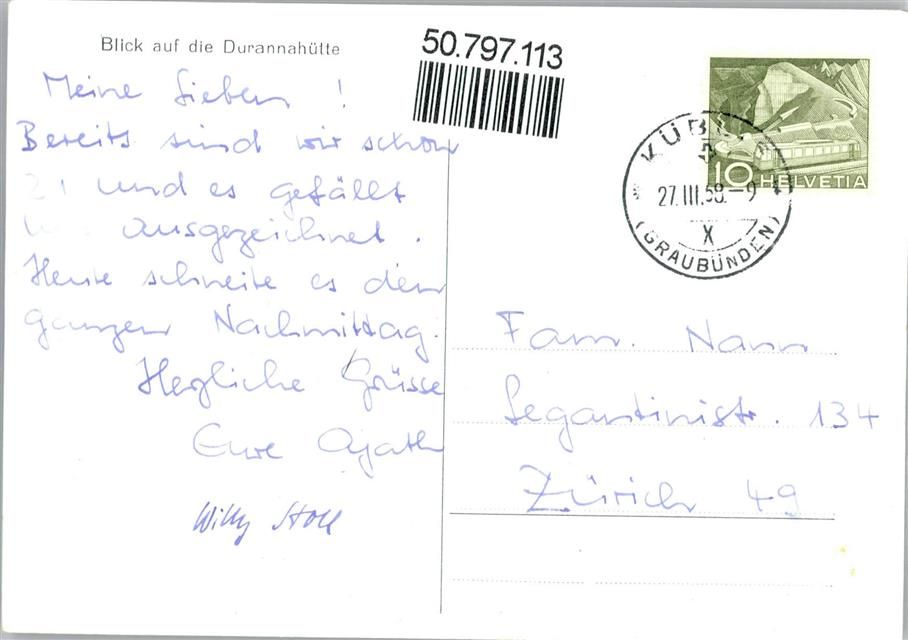 Blick auf die Durannahütte
50.797.113
Meine Lieben !
Bereits sind wir schon
und es gefällt
ausgezeichnet .
Heute schneite es den
ganzen Nachmittag.
Herzliche Grüsse
Eure Agath
Willy Stoll
10 HELVETIA
KÜBLIS
27.III.58.-9
X
(GRAUBÜNDEN)
Fam. Nann
Segantinistr. 134
Zürich 49